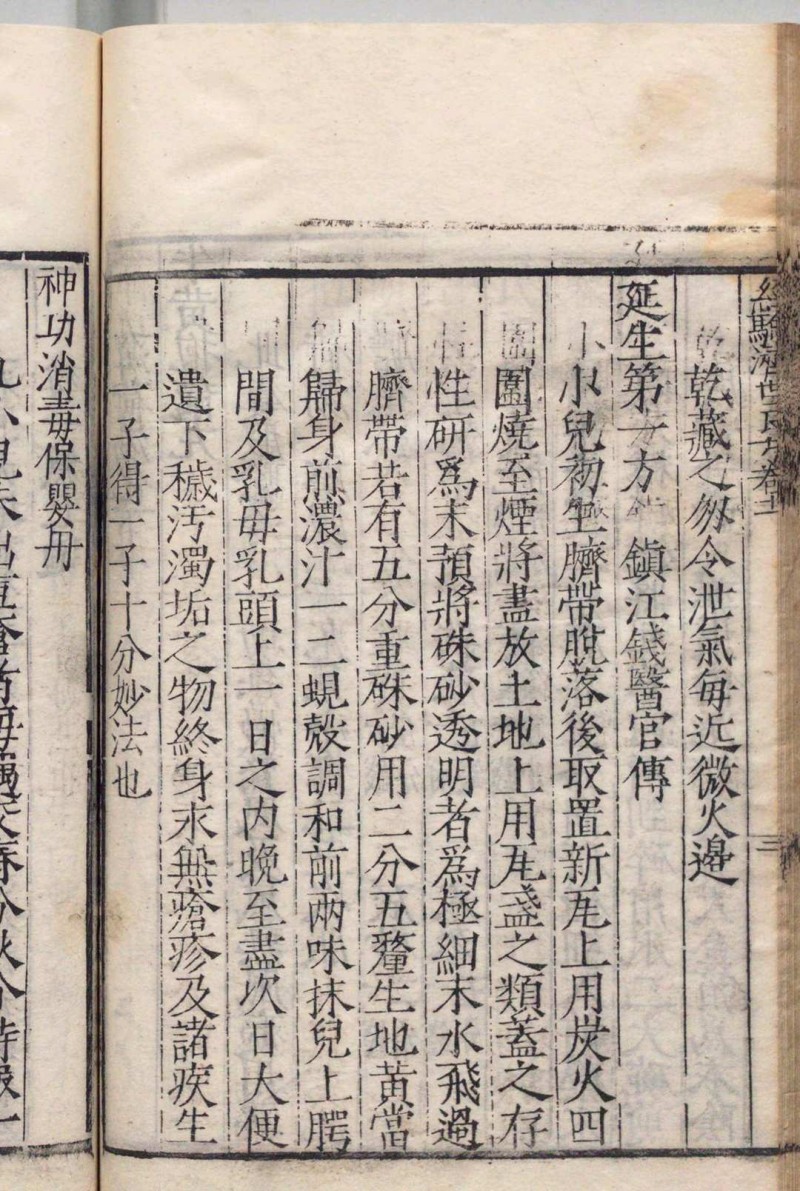 經驗濟世良方卷十一
乾藏之勿令泄氣每近微火邊
延生第一方 鎮江錢醫官傳
小兒初生臍帶脫落後取置新瓦上用炭火四
圍燒至煙將盡放土地上用瓦盞之類蓋之存
性研爲末預將硃砂透明者爲極細末水飛過
臍帶若有五分重硃砂用二分五釐生地黃當
歸身煎濃汁一二蜆殼調和前兩味抹兒上腭
間及乳母乳頭上一日之内晚至盡次日大便
遺下穢汚濁垢之物終身永無瘡疹及諸疾生
一子得一子十分妙法也
神功消毒保嬰丹